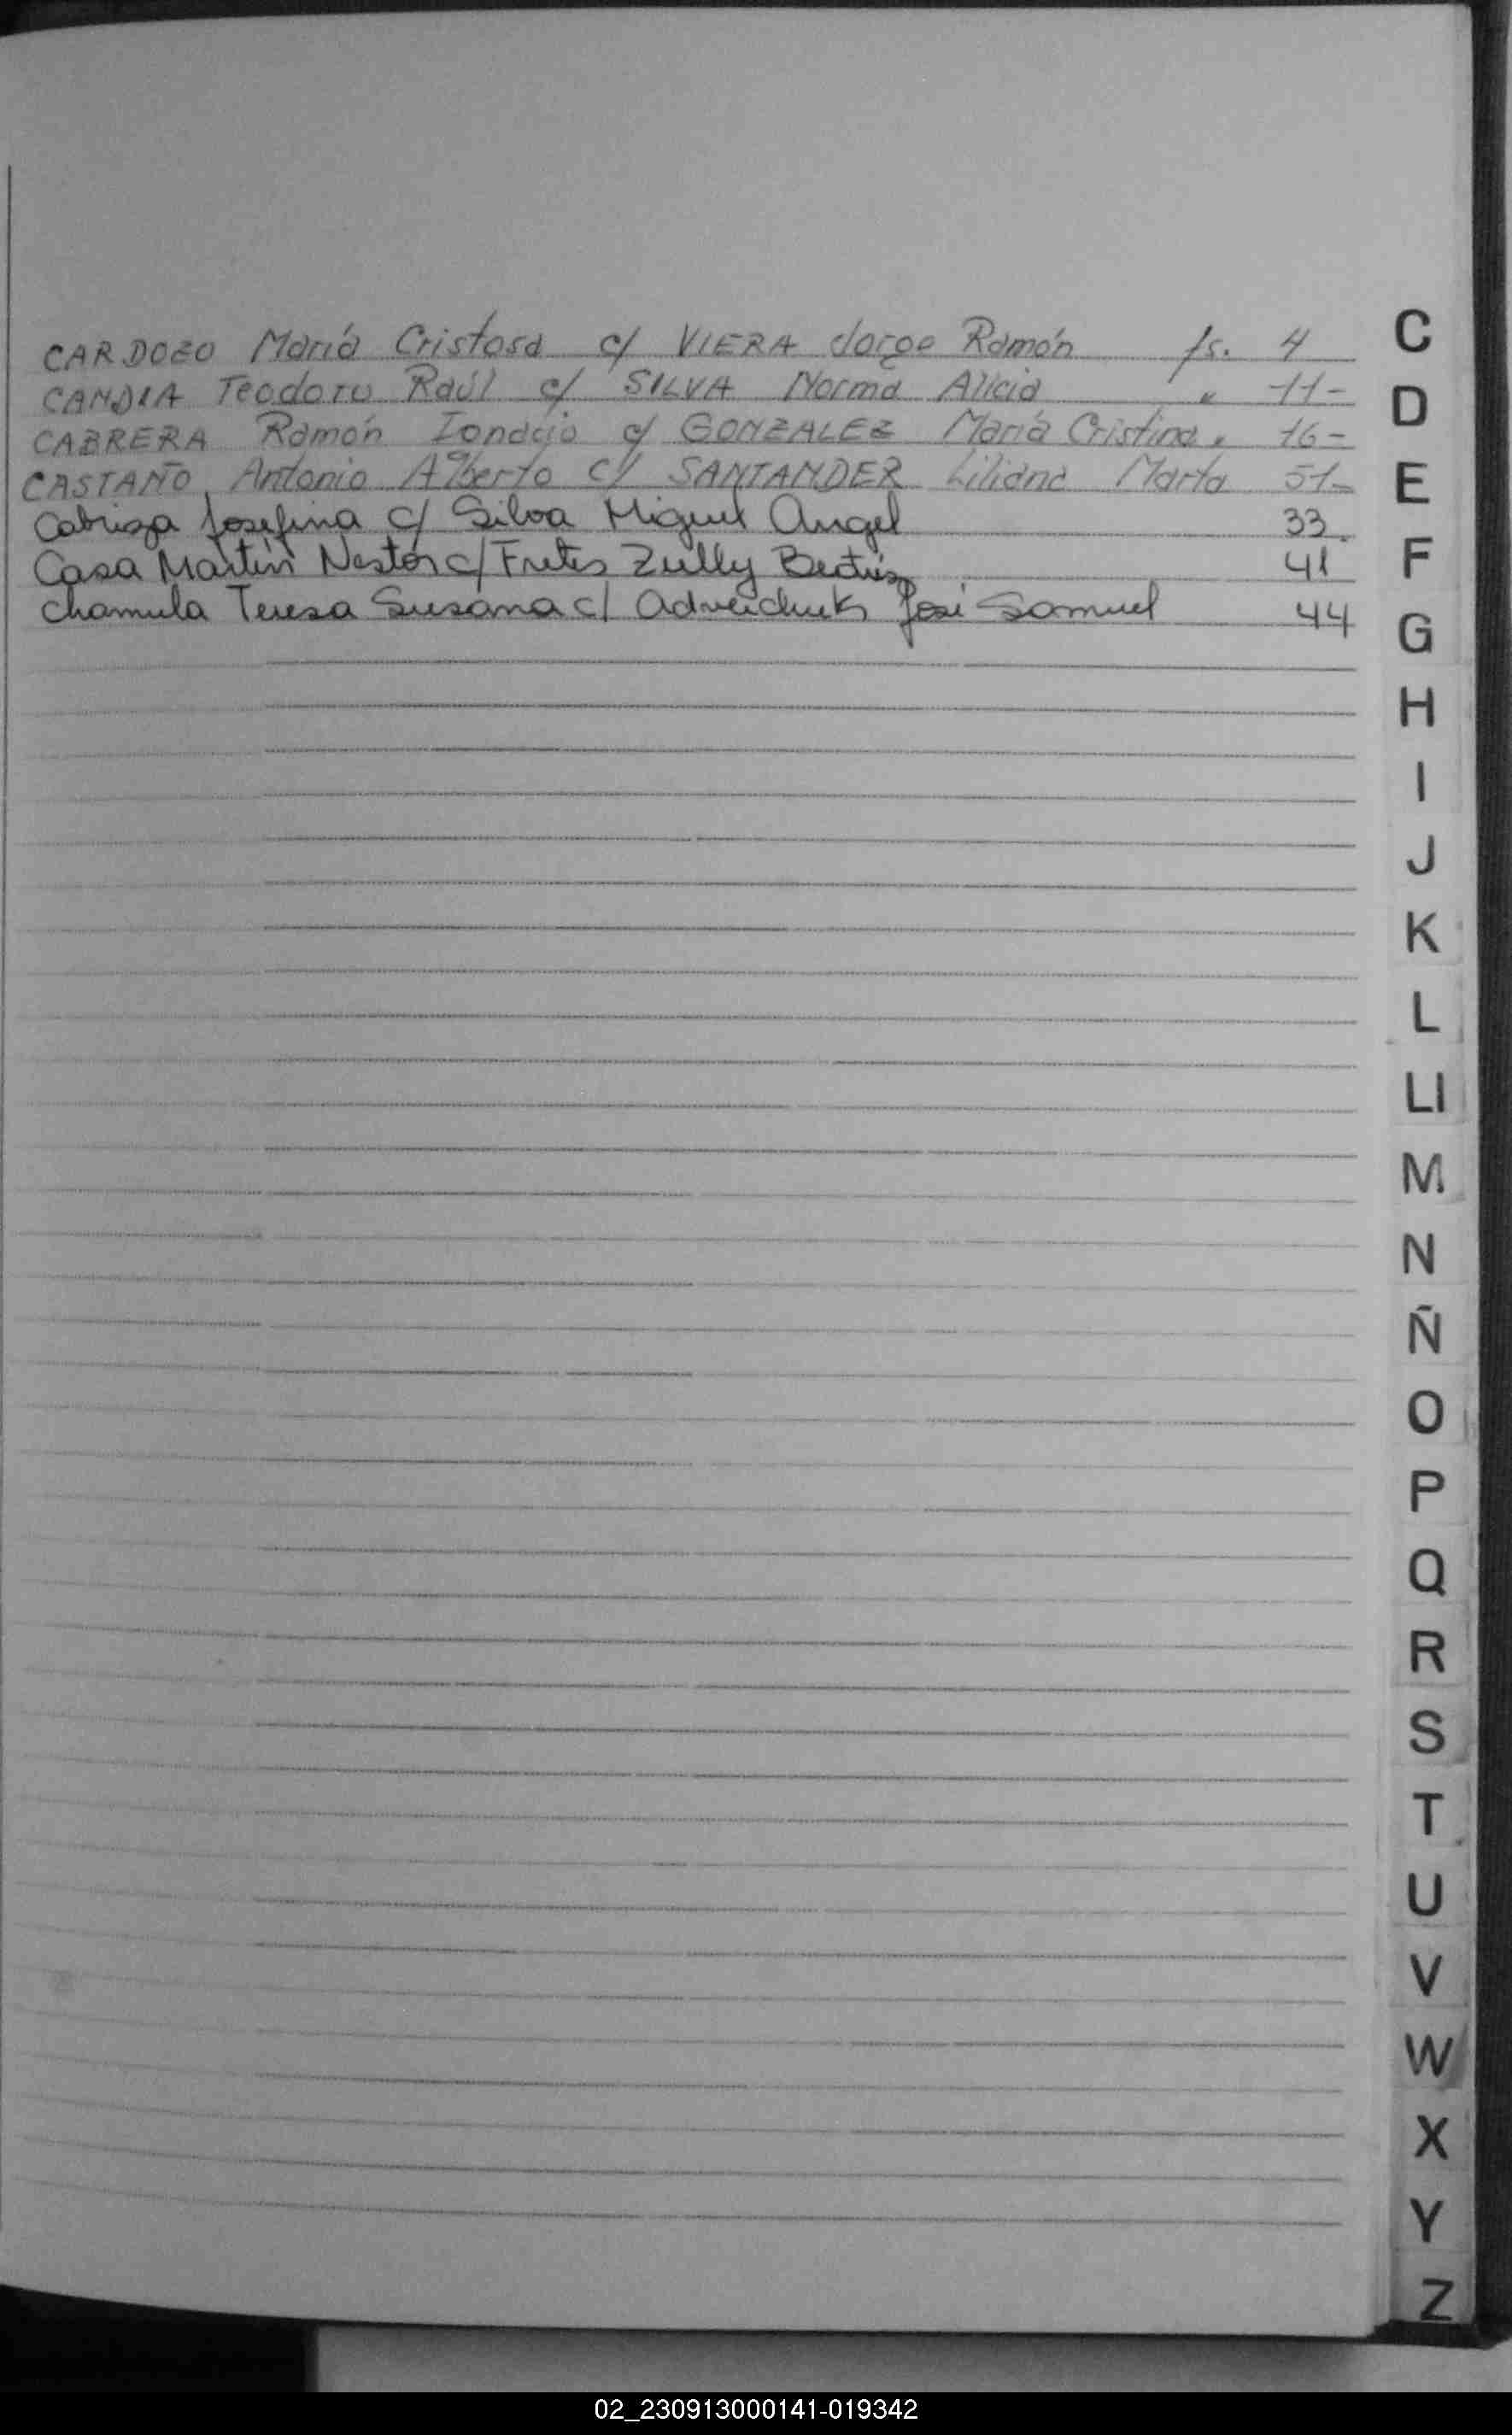 CARDOZO María Cristosa c/ VIERA Jorge Ramón fs. 4
CANDIA Teodoro Raúl c/ SILVA Norma Alicia " 11-
CABRERA Ramón Ignacio c/ GONZALEZ María Cristina " 16-
CASTAÑO, Antonio Alberto c/ SANTANDER Liliana Marta 51-
Cabriza Josefina c/ Silva Miguel Angel 33.
Casa Martín Nestor c/ Fretes Zully Beatriz 41
Chamula Teresa Susana c/ José Samuel 44
C
D
E
F
G
H
I
J
K
L
Ll
M
N
Ñ
O
P
Q
R
S
T
U
V
W
X
Y
Z
02_230913000141-019342